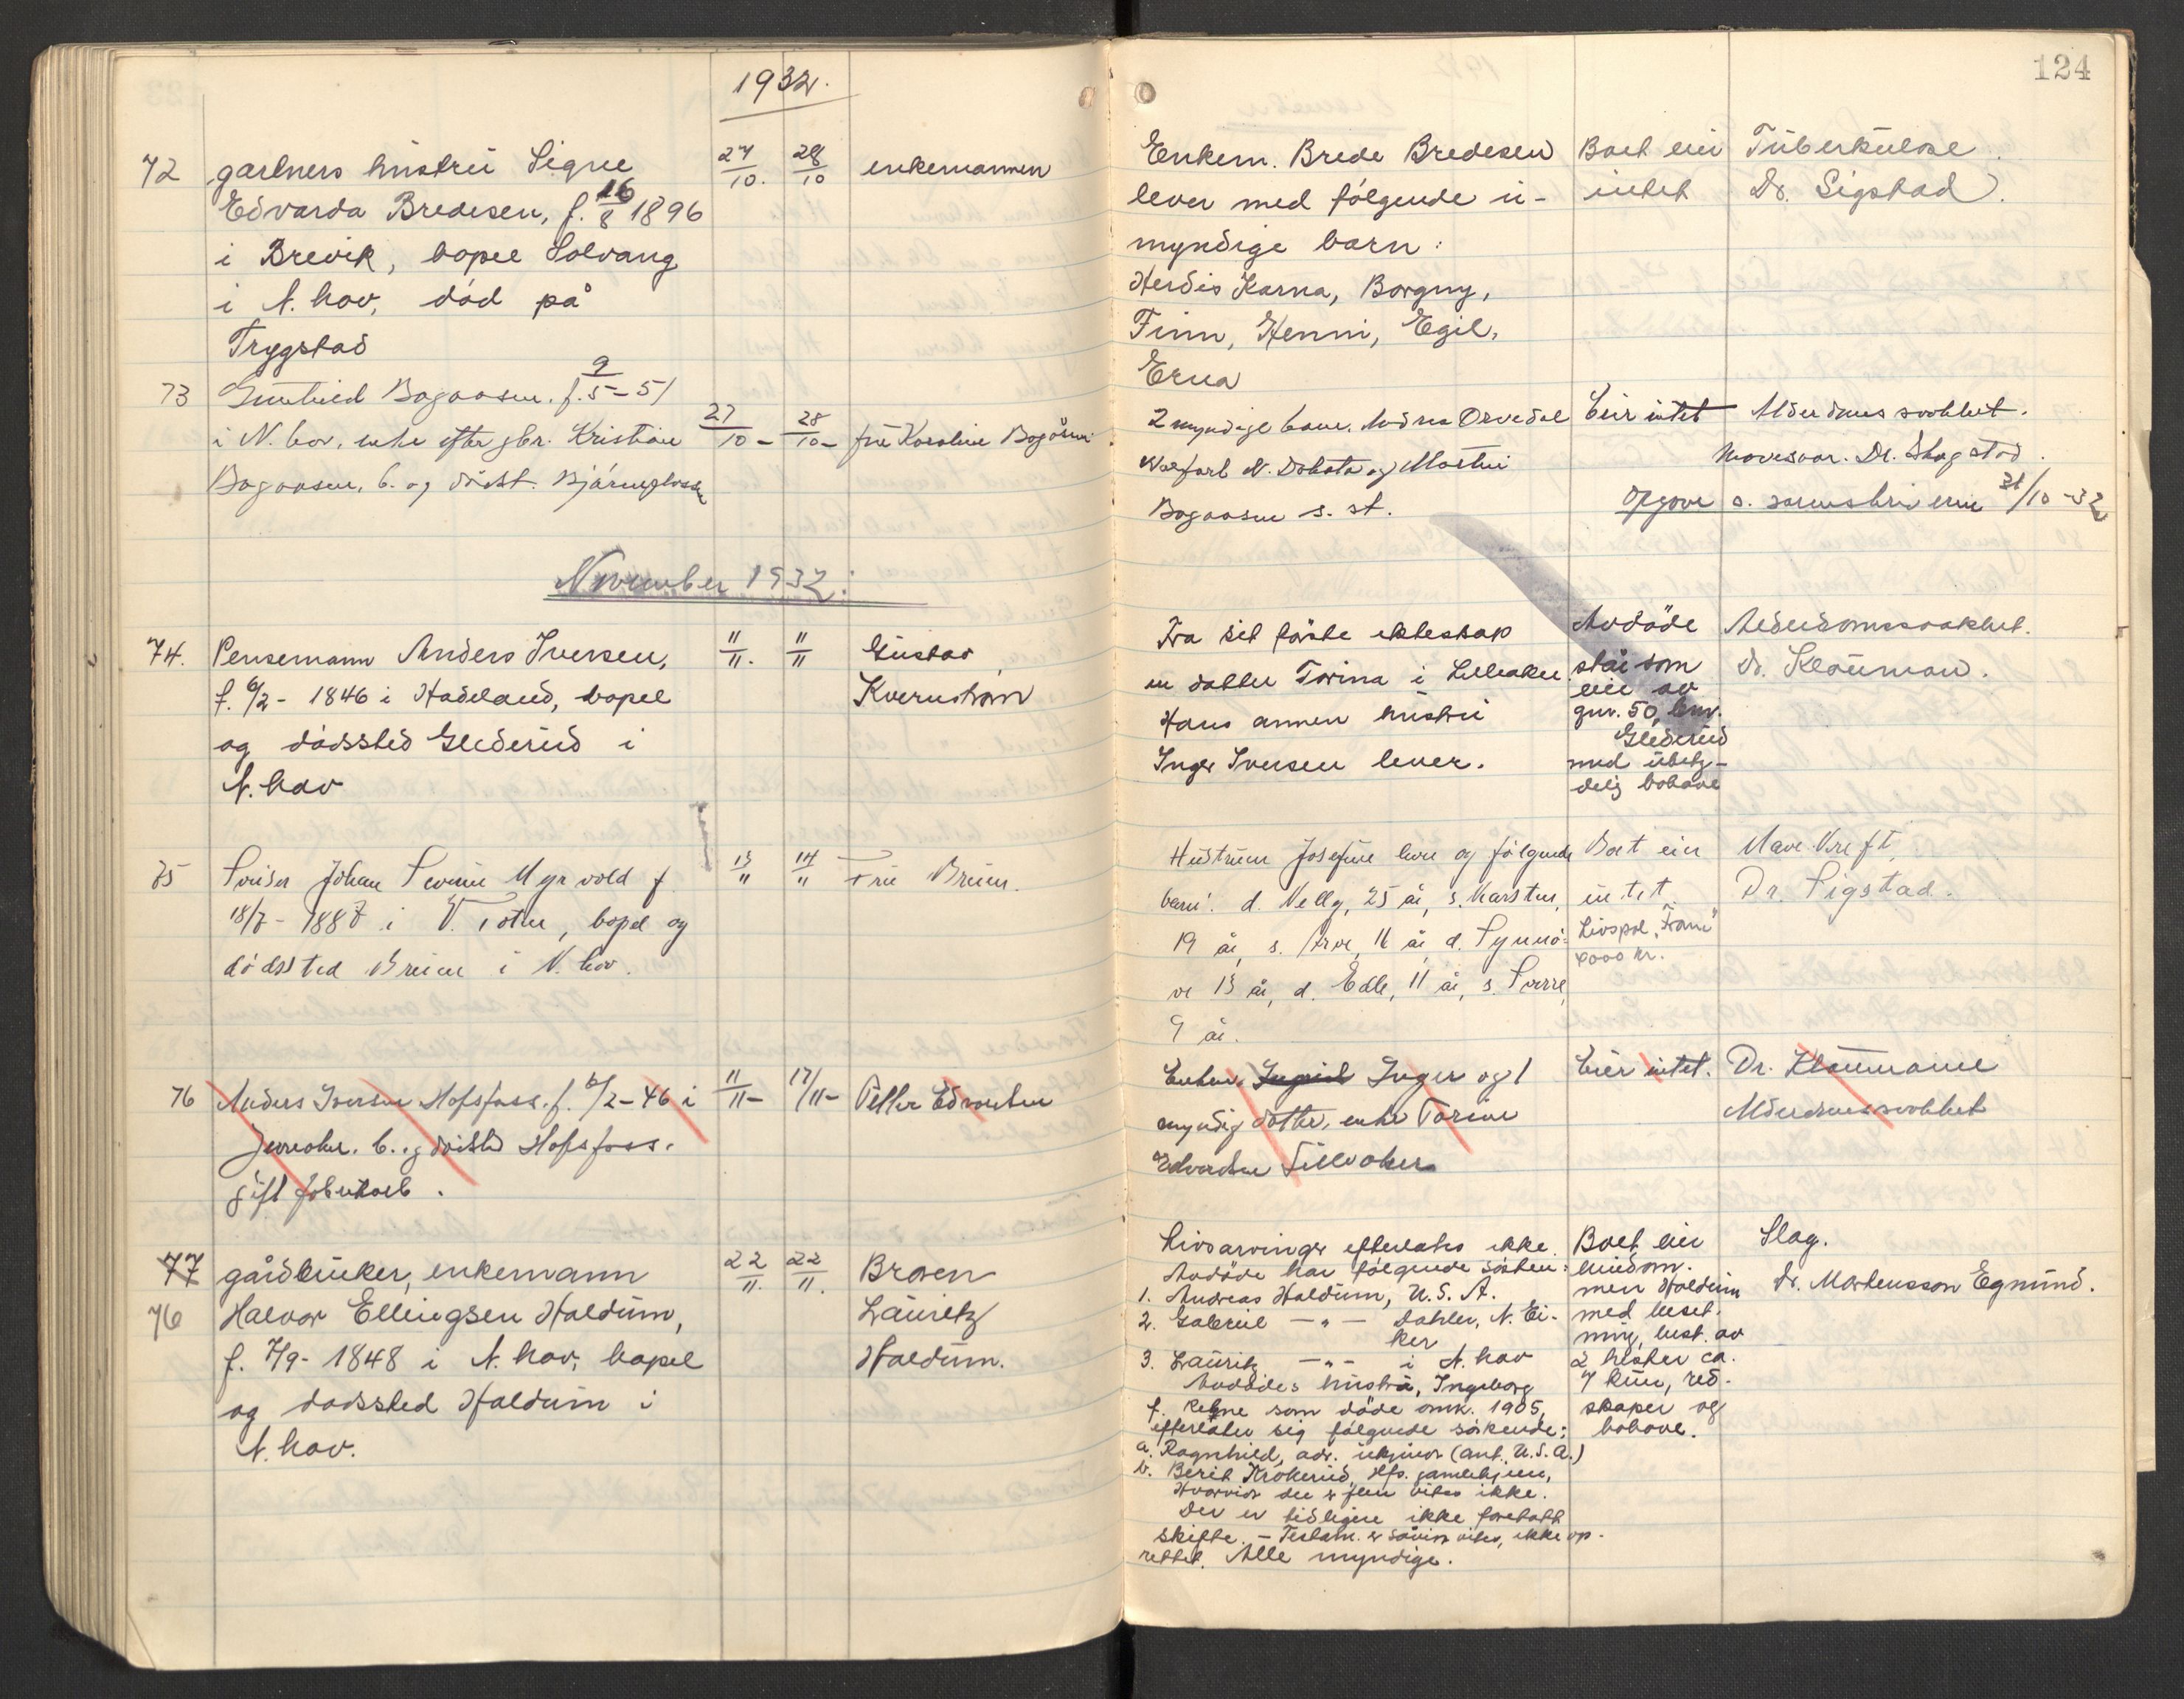 1932.
124
72 gartners hustru Signe
Edvarda Bredesen, f. 16/8 1896
i Brevik, bopel Solvang
i N. hov, död på
Trygstad
27/10. 28/10 enkemannen
Enkem. Brede Bredesen
lever med följende u-
myndige barn:
Herdis Karna, Borgny,
Finn, Henni, Egil,
Erna
Boet eier
intet
Tüberkülose.
Dr. Sigstad.
73 Gunhild Bogaasen. f. 9/5-51
i N. hov. enke efter gbr. Kristian
Bogaasen, b. og dödst.
27/10- 28/10- frü Karoline Bogåsen
2 myndige barn. Andrea Orvedal
N. Dakota og Martin
Bogaasen s. st.
Eier intet
Alderdomssvakhet.
Dr. Skogstad.
Opgave s. sorenskriveren 31/10-32
November 1932:
74. Pensemann Anders Iversen,
f. 6/2 - 1846 i Hadeland, bopel
og dödssted Gliderud i
N. hov
11/11. 11/11 Gustav
Kvernström
Fra sit förste ekteskap
en datter Torina i Lilleaker.
Hans annen hustru
Inger Iversen lever.
Avdöde
står som
eier av
gnr. 50, bnr.
Gliderud
med übety-
delig bohave
Alderdomssvakhet.
Dr. Klouman.
75 Sveiser Johan Severin Myrvold f.
18/7 - 1887 i V. Toten, bopel og
dödssted Breien i N. hov.
13/11 14/11 Frü Breien.
Hustruen Josefine lever og följende
barn: d. Nelly, 25 år, s. Karsten,
19 år, s. Arve, 16 år d. Synnö-
ve 13 år, d. Edle, 11 år, s. Sverre,
9 år.
Boet eier
intet.
Livspol. "Fram"
Mave Kreft
Dr. Sigstad.
76 Anders Iversen Hofsfoss. f. 6/2-46 i
Jevnaker. b. og dödsted Hofsfoss.
gift fabrikarb.
11/11- 17/11- Petter Edvardsen
Enken, Ingrid Inger og 1
myndig datter, enke Torine
Edvardsen Lilleaker
Eier intet.
Dr. Kloumann
Alderdomssvakhet
77
76
gårdbrüker, enkemann
Halvor Ellingsen Haldum,
f. 7/9 - 1848 i N. hov, bopel
og dödssted Haldum i
N. hov.
22/11. 22/11. Broren
Lauritz
Haldum.
Livsarvinger efterlates ikke.
Avdöde har följende sösken:
1. Andreas Haldum, U. S. A.
2. Gabriel -"- Dahler, N. Ei-
ker
3. Lauritz -"- i N. hov
Avdödes hustru, Ingeborg
f. Rehne som döde omk. 1905,
efterlater sig följende söskende:
a. Ragnhild, adr. ukjent (ant. U.S.A.)
b. Berit Krokerud, Hfs. gamlehjem,
Hvorvidt der er flere vites ikke.
Der er tidligere ikke foretatt
skifte. - Testam. er såvidt vites, ikke op-
rettet. Alle myndige.
Boet eier
eiendom.
men Haldum
med beset-
ning, best. av
2 hester ca.
7 kür, red-
skaper og
bohave.
Slag.
Dr. Martensson Egnund.